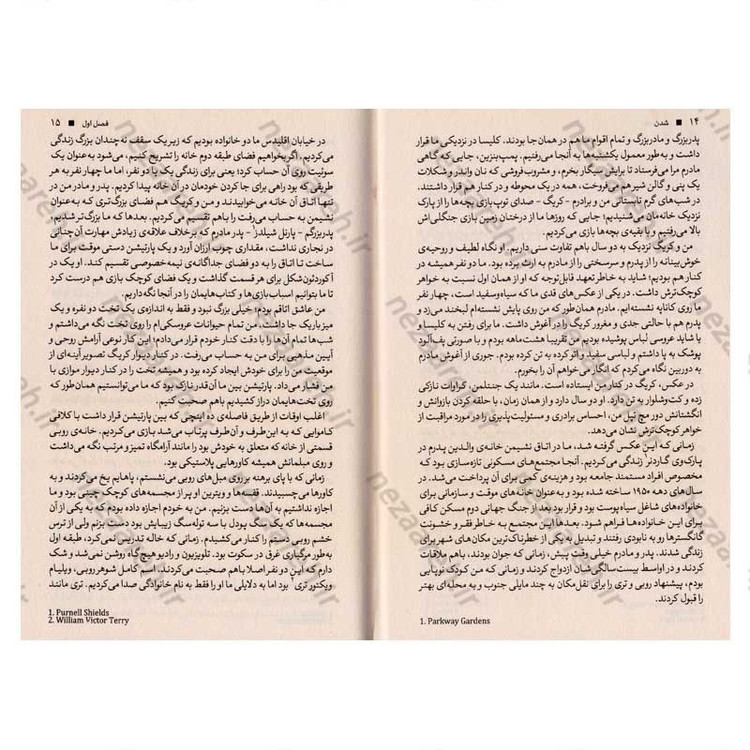 ۱۴ ■ شدن
پدربزرگ و مادربزرگ و تمام اقوام ما هم در همان جا بودند. کلیسا در نزدیکی ما قرار
داشت و به‌طور معمول یکشنبه‌ها به آنجا می‌رفتیم. پمپ‌بنزین، جایی که گاهی
مادرم مرا می‌فرستاد تا برایش سیگار بخرم، و مشروب‌فروشی که نان واندر و شکلات
یک پنی و گالن شیر هم می‌فروخت، همه در یک محوطه و در کنار هم قرار داشتند.
در شب‌های گرم تابستانی من و برادرم - کریگ - صدای توپ بازی بچه‌ها را از پارک
نزدیک خانه‌مان می‌شنیدیم؛ جایی که روزها ما از درختان زمین بازی جنگلی‌اش
بالا می‌رفتیم و با بقیه‌ی بچه‌ها بازی می‌کردیم.
من و کریگ نزدیک به دو سال باهم تفاوت سنی داریم. او نگاه لطیف و روحیه‌ی
خوش‌بینانه را از پدرم و سرسختی را از مادرم به ارث برده بود. ما دو نفر همیشه در
کنار هم بودیم؛ شاید به خاطر تعهد قابل‌توجه که او از همان اول نسبت به خواهر
کوچک‌ترش داشت. در یکی از عکس‌های قدی ما که سیاه‌وسفید است، چهار نفر
ما روی کاناپه نشسته‌ایم. مادرم همان‌طور که من روی پایش نشسته‌ام لبخند می‌زد و
پدرم هم با حالتی جدی و مغرور کریگ را در آغوش داشت. ما برای رفتن به کلیسا و
یا شاید عروسی لباس پوشیده بودیم. من تقریبا هشت‌ماهه بودم و با صورتی پف‌آلود
پوشک به پا داشتم و لباسی سفید و اتو کرده به تن کرده بودم. جوری از آغوش مادرم
به دوربین نگاه می‌کردم که انگار می‌خواهم آن را بخورم.
در عکس، کریگ در کنار من ایستاده است. مانند یک جنتلمن، کراوات نازکی
زده و کت‌وشلوار به تن دارد. او دو سال دارد و از همان زمان، با حلقه کردن بازوانش و
انگشتانش دور مچ تپل من، احساس برادری و مسئولیت‌پذیری را در مورد مراقبت از
خواهر کوچک‌ترش نشان می‌دهد.
زمانی که این عکس گرفته شد، ما در اتاق نشیمن خانه‌ی والدین پدرم در
پارک‌وی گاردنز¹ زندگی می‌کردیم. آنجا مجتمع‌های مسکونی تازه‌سازی بود که
مخصوص افراد مستمند جامعه بود و هزینه‌ی کمی برای آن پرداخت می‌شد. در
سال‌های دهه ۱۹۵۰ ساخته شده بود و به‌عنوان خانه‌های موقت و سازمانی برای
خانواده‌های شاغل سیاه‌پوست بود و قرار بود بعد از جنگ جهانی دوم مسکن کافی
برای این خانواده‌ها فراهم شود. بعدها این مجتمع به خاطر فقر و خشونت
گانگسترها رو به نابودی رفتند و تبدیل به یکی از خطرناک‌ترین مکان‌های شهر برای
زندگی شدند. پدر و مادرم خیلی وقت پیش، زمانی که جوان بودند، باهم ملاقات
کردند و در اواسط بیست‌سالگی‌شان ازدواج کردند و زمانی که من کودک نوپایی
بودم، پیشنهاد روبی و تری را برای نقل‌مکان به چند مایلی جنوب و به محله‌ای بهتر
را قبول کردند.
1. Parkway Gardens
فصل اول ■ ۱۵
در خیابان اقلیدس ما دو خانواده بودیم که زیر یک سقف نه چندان بزرگ زندگی
می‌کردیم. اگر بخواهیم فضای طبقه دوم خانه را تشریح کنیم، می‌شود به‌عنوان یک
سوئیت روی آن حساب کرد؛ یعنی برای زندگی یک یا دو نفر، اما ما چهار نفر به هر
طریقی که بود راهی برای جا کردن خودمان در آن خانه پیدا کردیم. پدر و مادر من در
تنها اتاق آن خانه می‌خوابیدند و من و کریگ هم فضای بزرگ‌تری که به‌عنوان
نشیمن به حساب می‌رفت را باهم تقسیم می‌کردیم. بعدها که ما بزرگ‌تر شدیم،
پدربزرگم - پارنل شیلدز¹ - پدر مادرم که برخلاف علاقه‌ی زیادش مهارت آن‌چنانی
در نجاری نداشت، مقداری چوب ارزان آورد و یک پارتیشن دستی موقت برای ما
ساخت تا اتاق را به دو فضای جداگانه‌ی نیمه‌خصوصی تقسیم کند. او یک در
آکوردئون‌شکل برای هر قسمت گذاشت و یک فضای کوچک بازی هم درست کرد
تا ما بتوانیم اسباب‌بازی‌ها و کتاب‌هایمان را در آنجا نگه داریم.
من عاشق اتاقم بودم؛ خیلی بزرگ نبود و فقط به اندازه‌ی یک تخت دو نفره و یک
میز باریک جا داشت. من تمام حیوانات عروسکی‌ام را روی تخت نگه می‌داشتم و
شب‌ها تمام آن‌ها را با دقت کنار خودم قرار می‌دادم؛ این کار نوعی آرامش روحی و
آیین مذهبی برای من به حساب می‌رفت. در کنار دیوار کریگ تصویر آینه‌ای از
موقعیت من را برای خودش ایجاد کرده بود و همیشه تخت را در کنار دیوار موازی با
من فشار می‌داد. پارتیشن بین ما آن‌قدر نازک بود که ما می‌توانستیم همان‌طور که
روی تخت‌هایمان دراز کشیدیم باهم صحبت کنیم.
اغلب اوقات از طریق فاصله‌ی ده اینچی که بین پارتیشن قرار داشت با کلافی
کاموایی که به این‌طرف و آن‌طرف پرتاب می‌شد بازی می‌کردیم. خانه‌ی روبی
قسمتی از خانه که متعلق به خودش بود را مانند آرامگاه تمیز و مرتب نگه می‌داشت
و روی مبلمانش همیشه کاورهایی پلاستیکی بود.
زمانی که با پای برهنه بر روی مبل‌های روبی می‌نشستم، پاهایم یخ می‌کردند و به
کاورها می‌چسبیدند. قفسه‌ها و ویترین او پر از مجسمه‌های کوچک چینی بود و ما
اجازه نداشتیم به آن‌ها دست بزنیم. من به خودم اجازه داده بودم که به یکی از آن
مجسمه‌ها که یک سگ پودل با سه توله‌سگ زیبایش بود دست بزنم ولی از ترس
خشم روبی دستم را کنار می‌کشیدم. زمانی که خاله تدریس نمی‌کرد، طبقه اول
به‌طور مرگباری غرق در سکوت بود. تلویزیون و رادیو هیچ‌گاه روشن نمی‌شد و شک
دارم که این دو نفر اصلا باهم صحبت می‌کردند. اسم کامل شوهر روبی، ویلیام
ویکتور تری² بود اما به دلایلی ما او را فقط به نام خانوادگی صدا می‌کردیم. تری مانند
1. Purnell Shields
2. William Victor Terry
nezaareh.ir